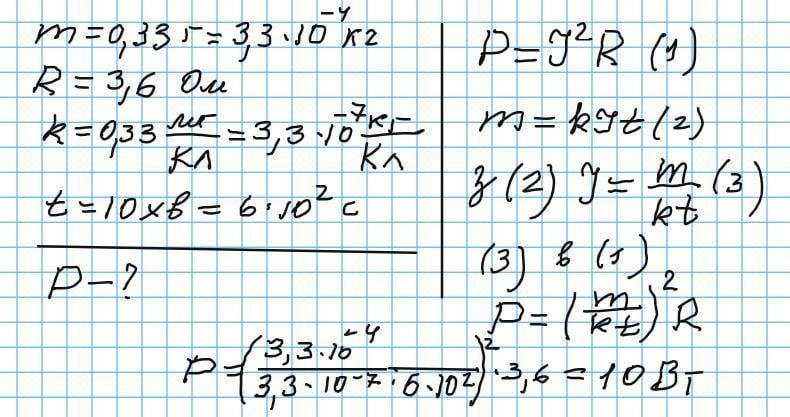 m = 0,33 г = 3,3 · 10⁻⁴ кг
R = 3,6 Ом
k = 0,33 мг/Кл = 3,3 · 10⁻⁷ кг/Кл
t = 10 хв = 6 · 10² с
P – ?
P = I²R (1)
m = kIt (2)
З (2) I = m/kt (3)
(3) в (1)
P = (m/kt)² R
P = (3,3 · 10⁻⁴ / 3,3 · 10⁻⁷ · 6 · 10²)² · 3,6 = 10 Вт